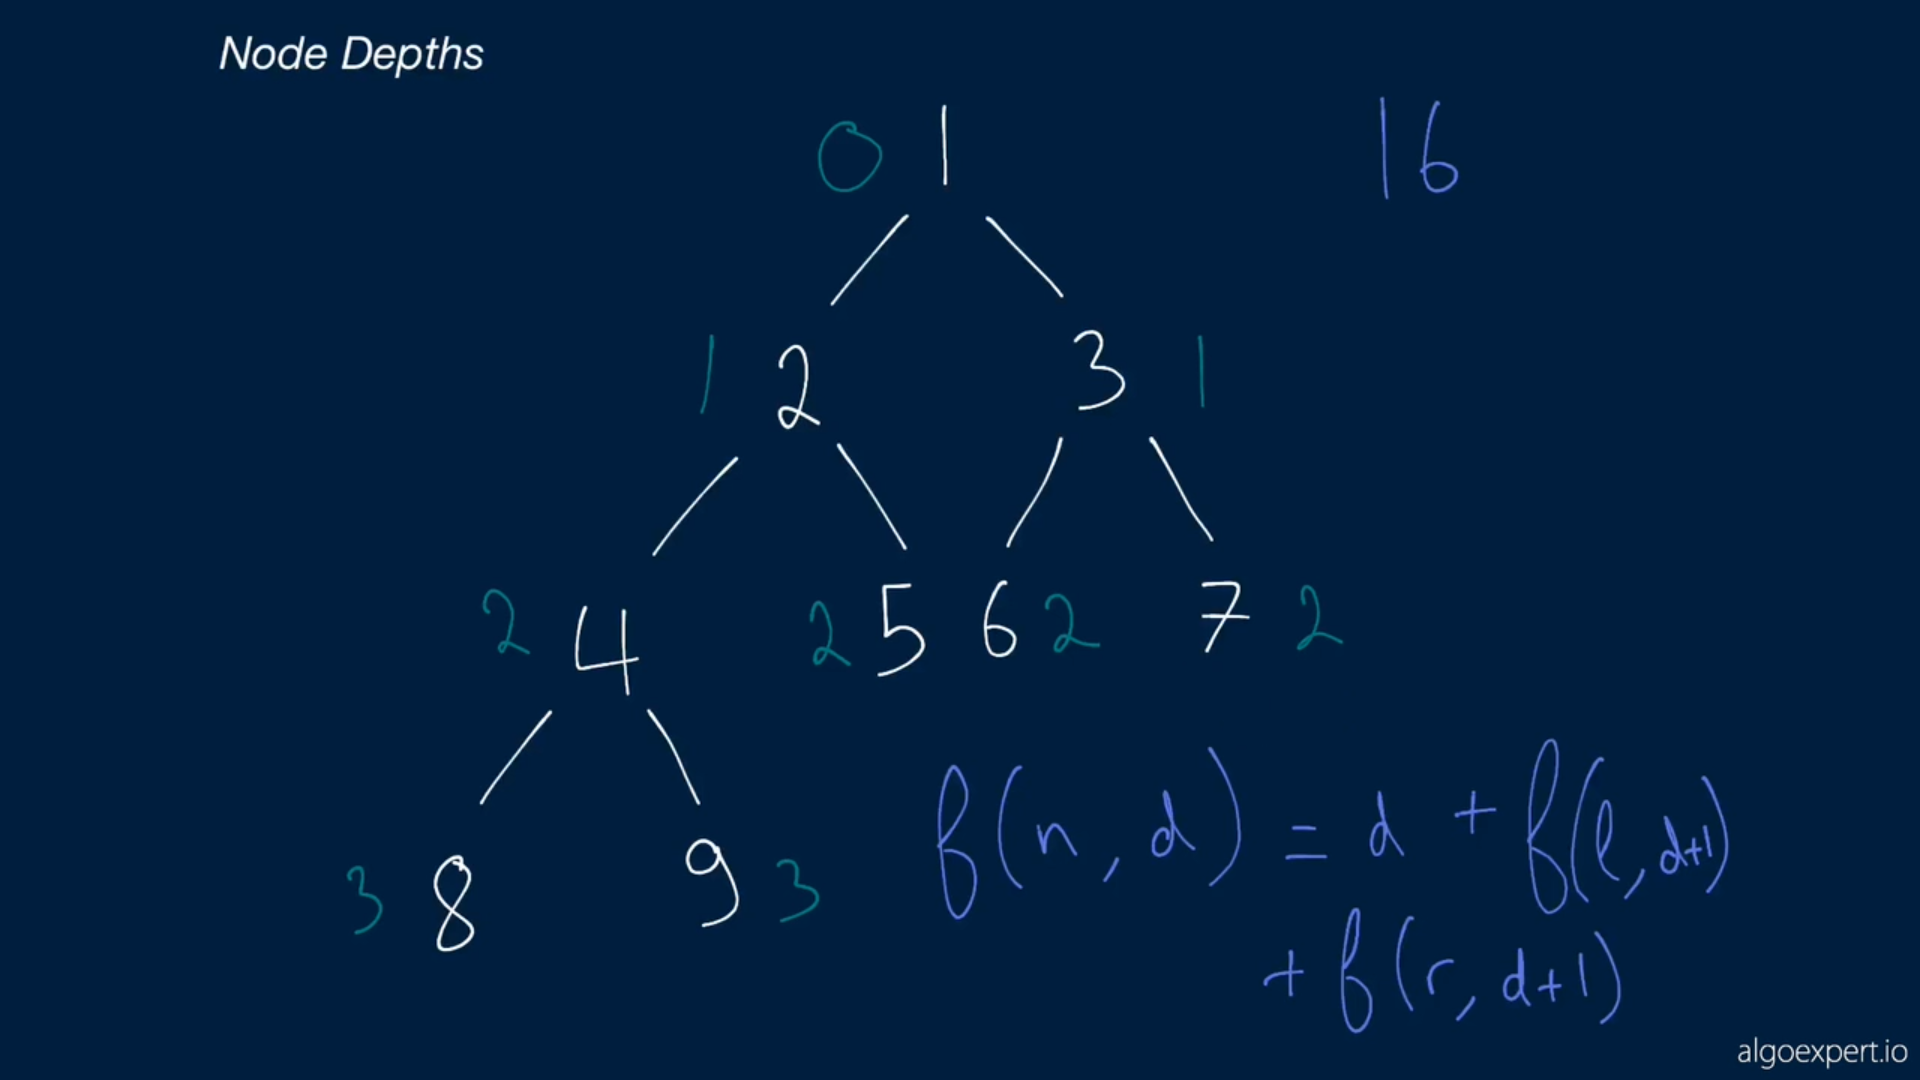 Node Depths
0 1 16
1 2 3 1
2 4 2 5 6 2 7 2
f(n, d) = d + f(l, d+1)
+ f(r, d+1)
3 8 9 3
algoexpert.io